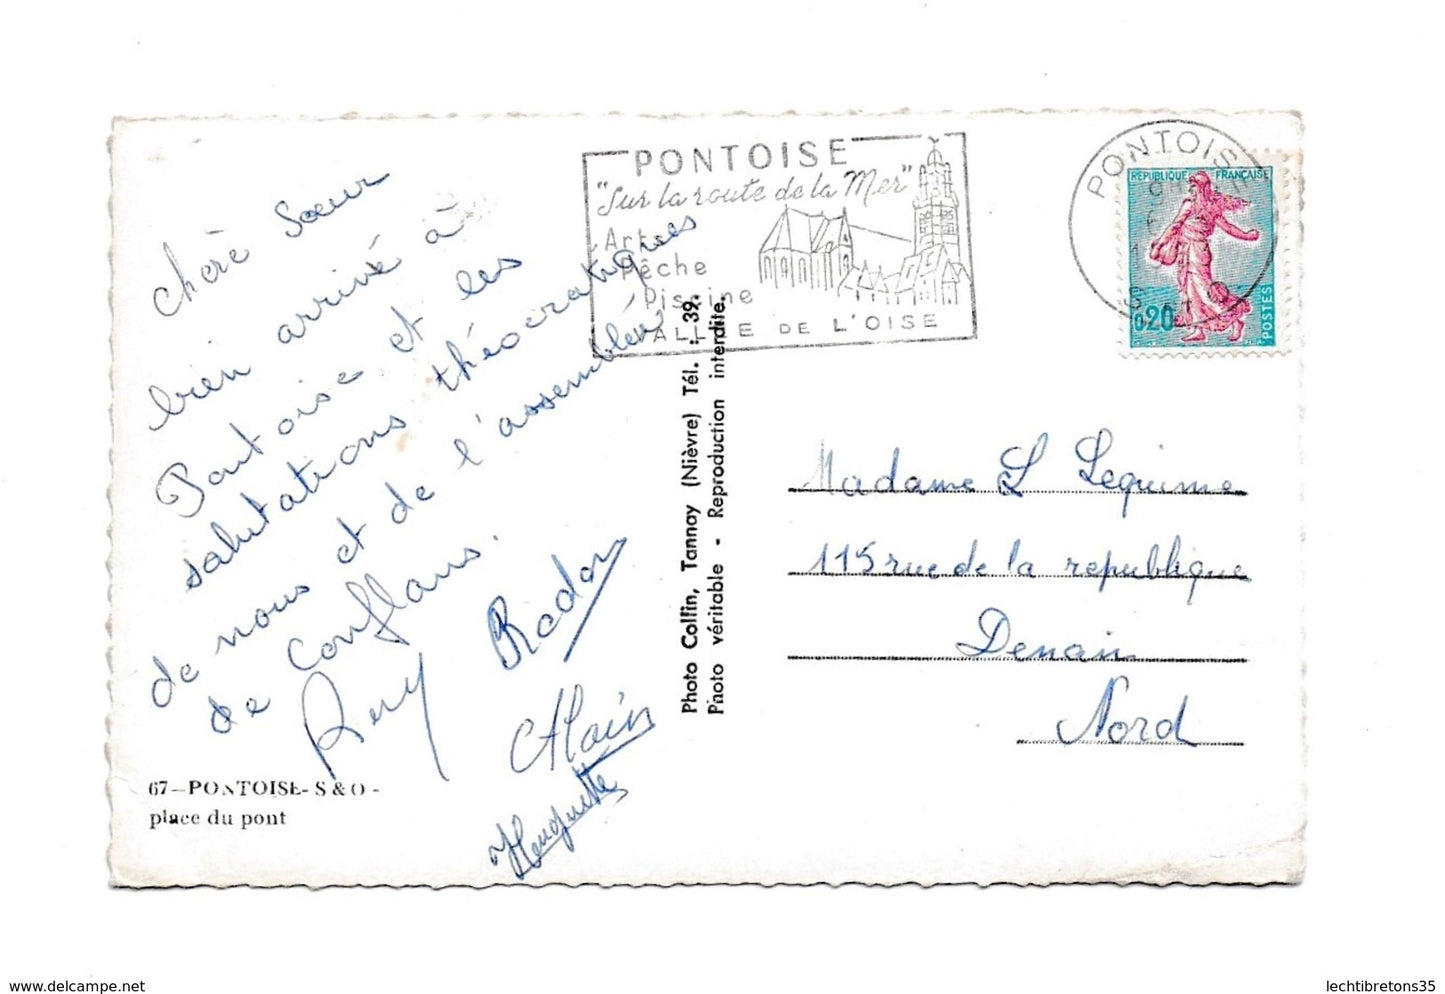 chère Sœur
bien arrivé à
Pontoise et les
salutations théocratiques
de nous et de l'assemblée
de Conflans.
Alain
Huguette
67-PONTOISE-S&O-
place du pont
Photo Colfin, Tannay (Nièvre) Tél. : 39.
Photo véritable - Reproduction interdite.
PONTOISE
"Sur la route de la Mer"
Arts
Pêche
Piscine
VALLÉE DE L'OISE
PONTOISE
S. & O.
REPUBLIQUE FRANÇAISE
0,20
POSTES
Madame L Lequime
115 rue de la republique
Denain
Nord
delcampe.net
lechtibretons35